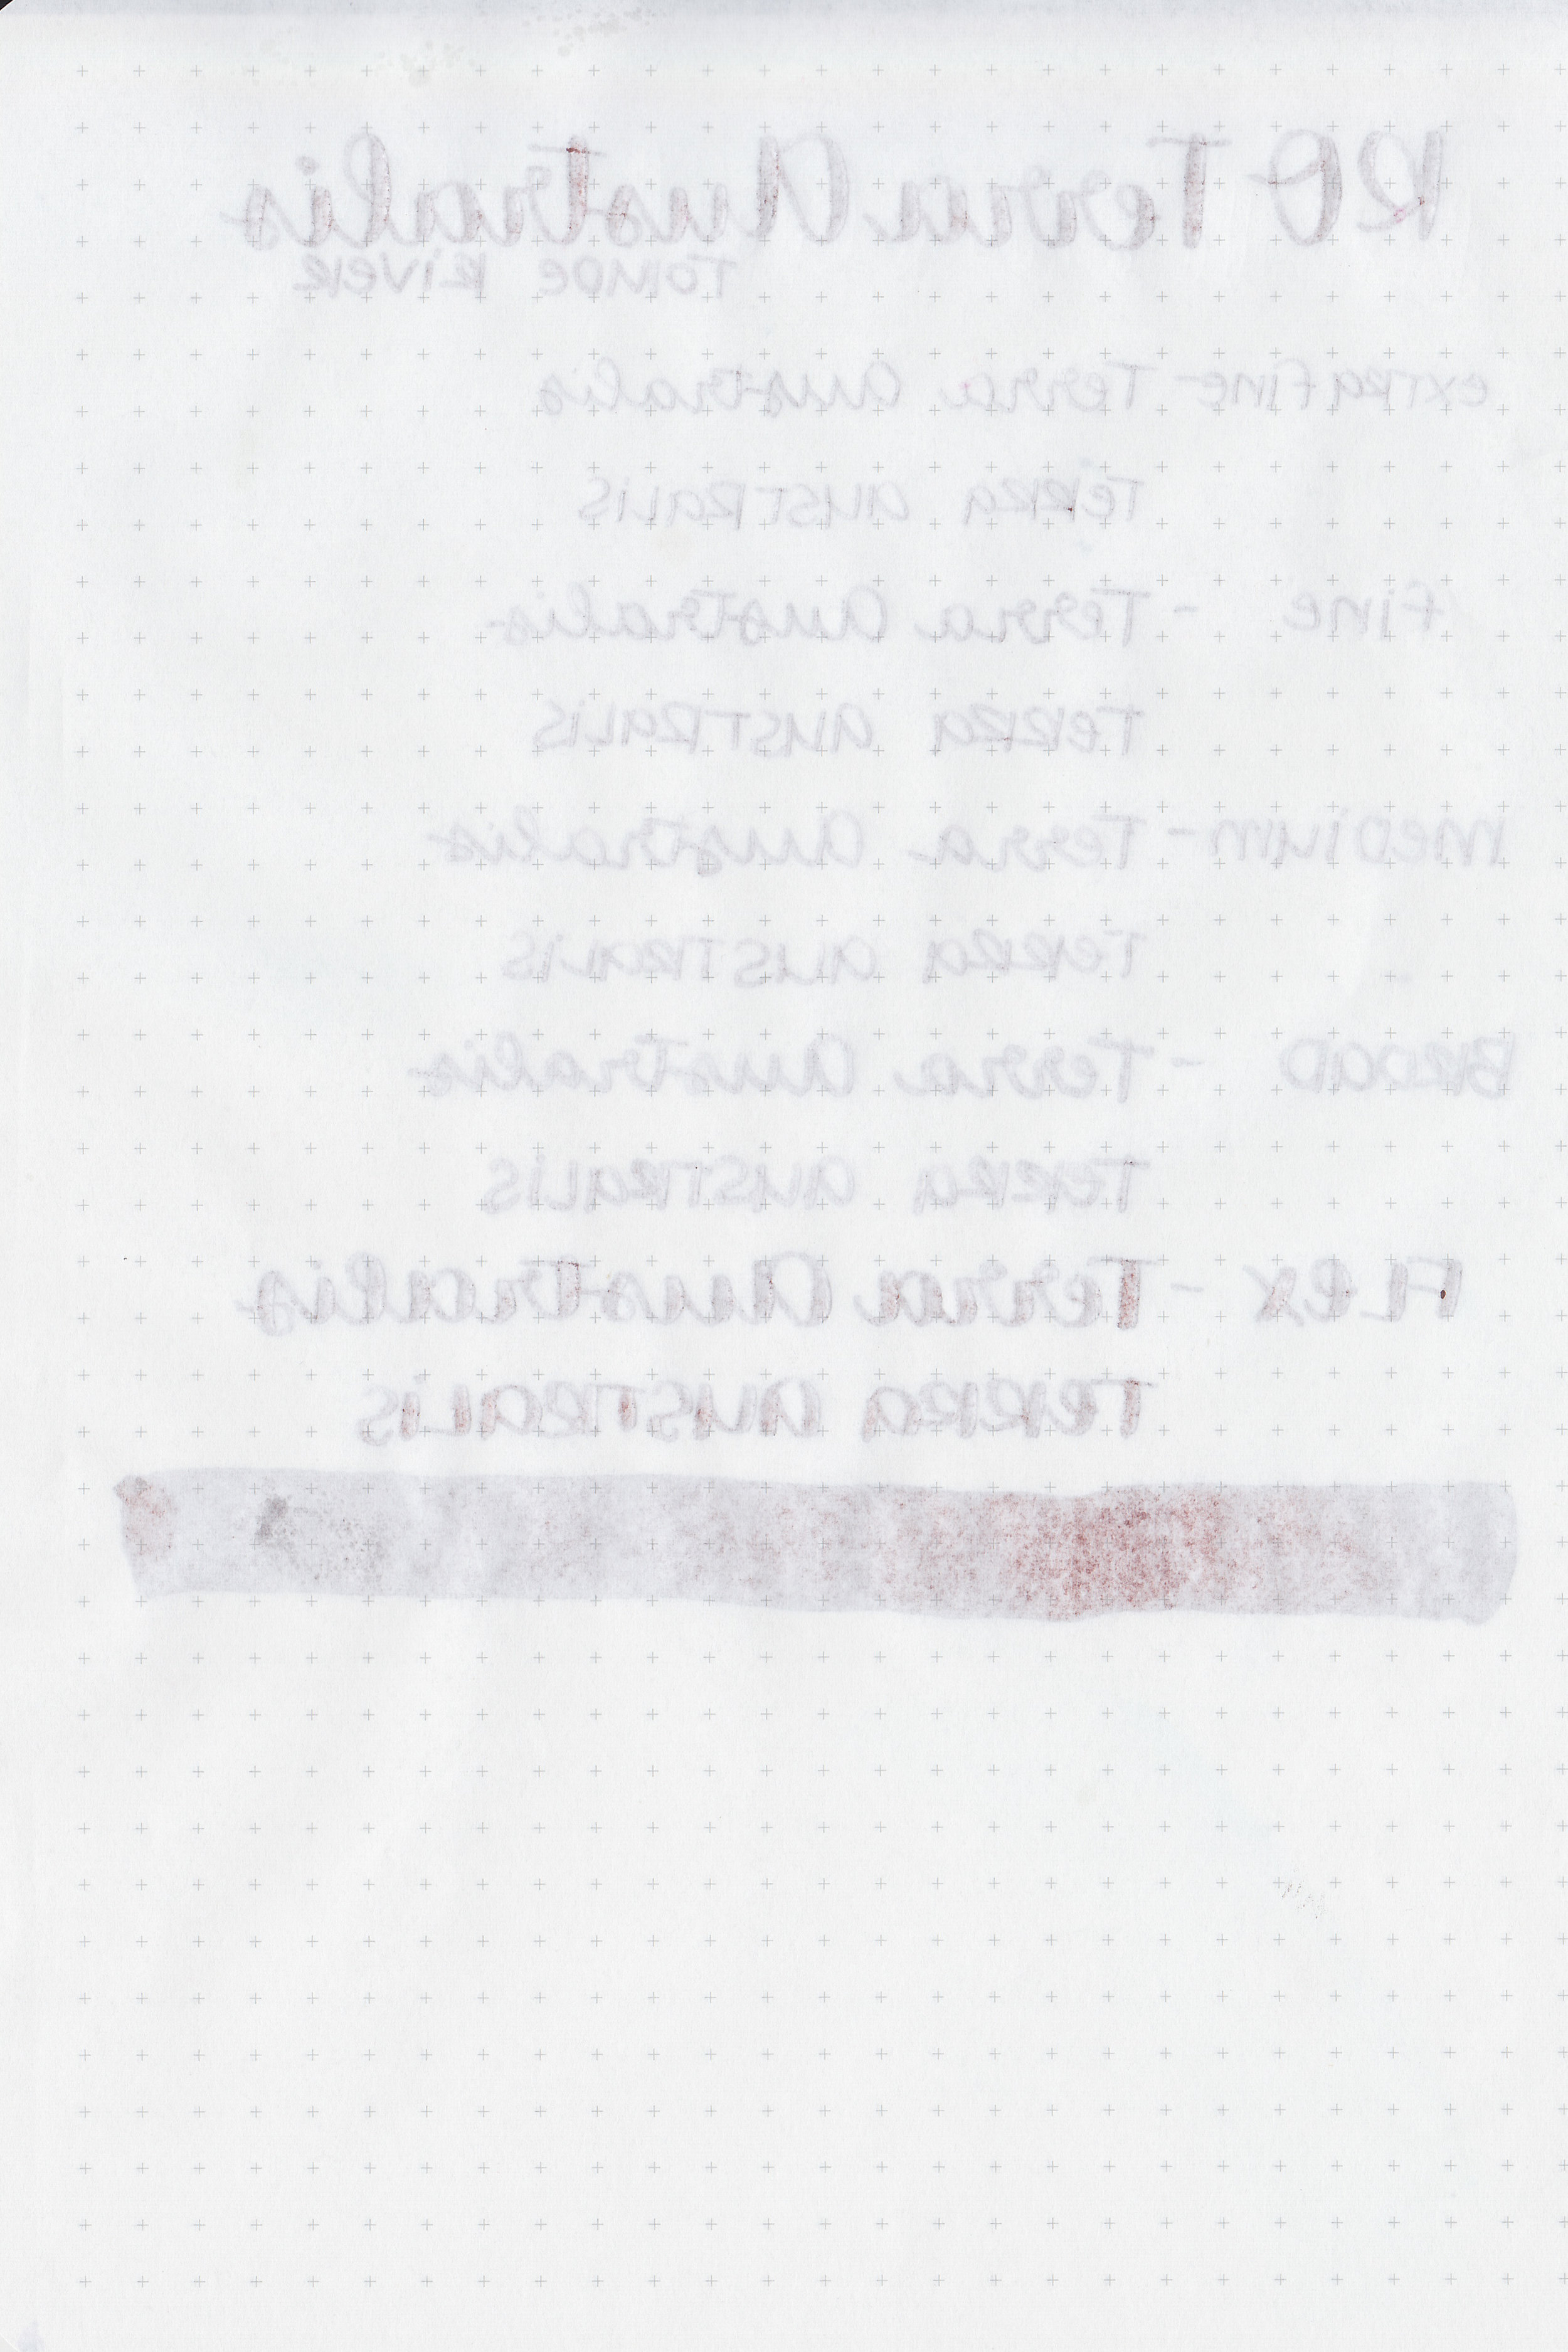 RO Terra Australis
TOMOE RIVER
extra fine - Terra Australis
Terra Australis
Fine - Terra Australis
Terra Australis
Medium - Terra Australis
Terra Australis
Broad - Terra Australis
Terra Australis
Flex - Terra Australis
Terra Australis